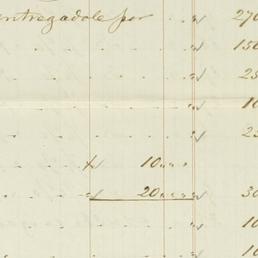 entregadole por " 270
" 150
" 25
" 10
" 25
" 10 " "
" 20 " " " 30
10
10